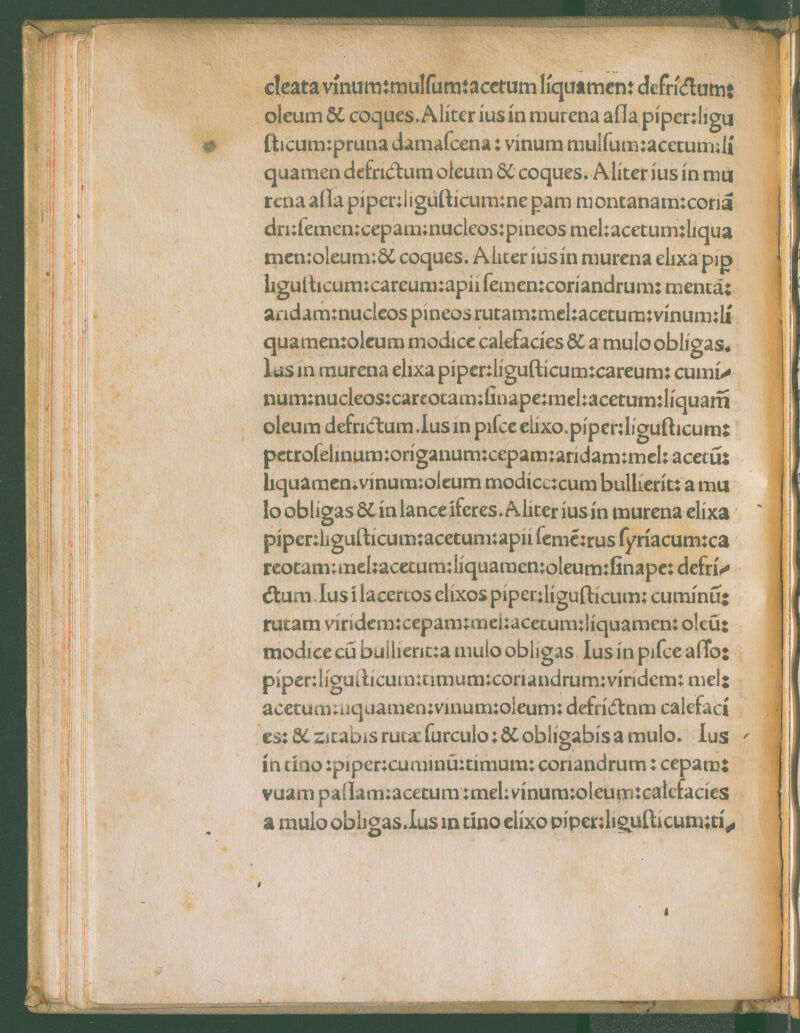 cleata vinum:mulſum:acetum liquamen: defrictum:
oleum & coques. Aliter ius in murena aſſa piper:ligu
ſticum:pruna damaſcena: vinum mulſum:acetum:li
quamen defrictum oleum & coques. Aliter ius in mu
rena aſſa piper:liguſticum:ne pam montanam:coriā
dri:ſemen:cepam:nucleos:pineos mel:acetum:liqua
men:oleum:& coques. Aliter ius in murena elixa pip
liguſticum:careum:apii ſemen:coriandrum: mentā:
aridam:nucleos pineos rutam:mel:acetum:vinum:li
quamen:oleum modice calefacies & a mulo obligas.
Ius in murena elixa piper:liguſticum:careum: cumi⸗
num:nucleos:careotam:ſinape:mel:acetum:liquam̄
oleum defrictum. Ius in piſce elixo. piper:liguſticum:
petroſelinum:origanum:cepam:aridam:mel: acetū:
liquamen.vinum:oleum modice:cum bullierit: a mu
lo obligas & in lance īferes. Aliter ius in murena elixa
piper:liguſticum:acetum:apii ſemē:rus ſyriacum:ca
reotam:mel:acetum:liquamen:oleum:ſinape: defri⸗
ctum. Ius ī lacertos elixos piper:liguſticum: cuminū:
rutam viridem:cepam:mel:acetum:liquamen: oleū:
modice cū bullierit:a mulo obligas. Ius in piſce aſſo:
piper:liguſticum:timum:coriandrum:viridem: mel:
acetum:liquamen:vinum:oleum: defrictnm calefaci
es: & zitabis rutæ ſurculo: & obligabis a mulo. Ius
in tino:piper:cuminū:timum: coriandrum: cepam:
vuam paſſam:acetum:mel:vinum:oleum:calefacies
a mulo obligas. Ius in tino elixo piper:liguſticum:ti⸗